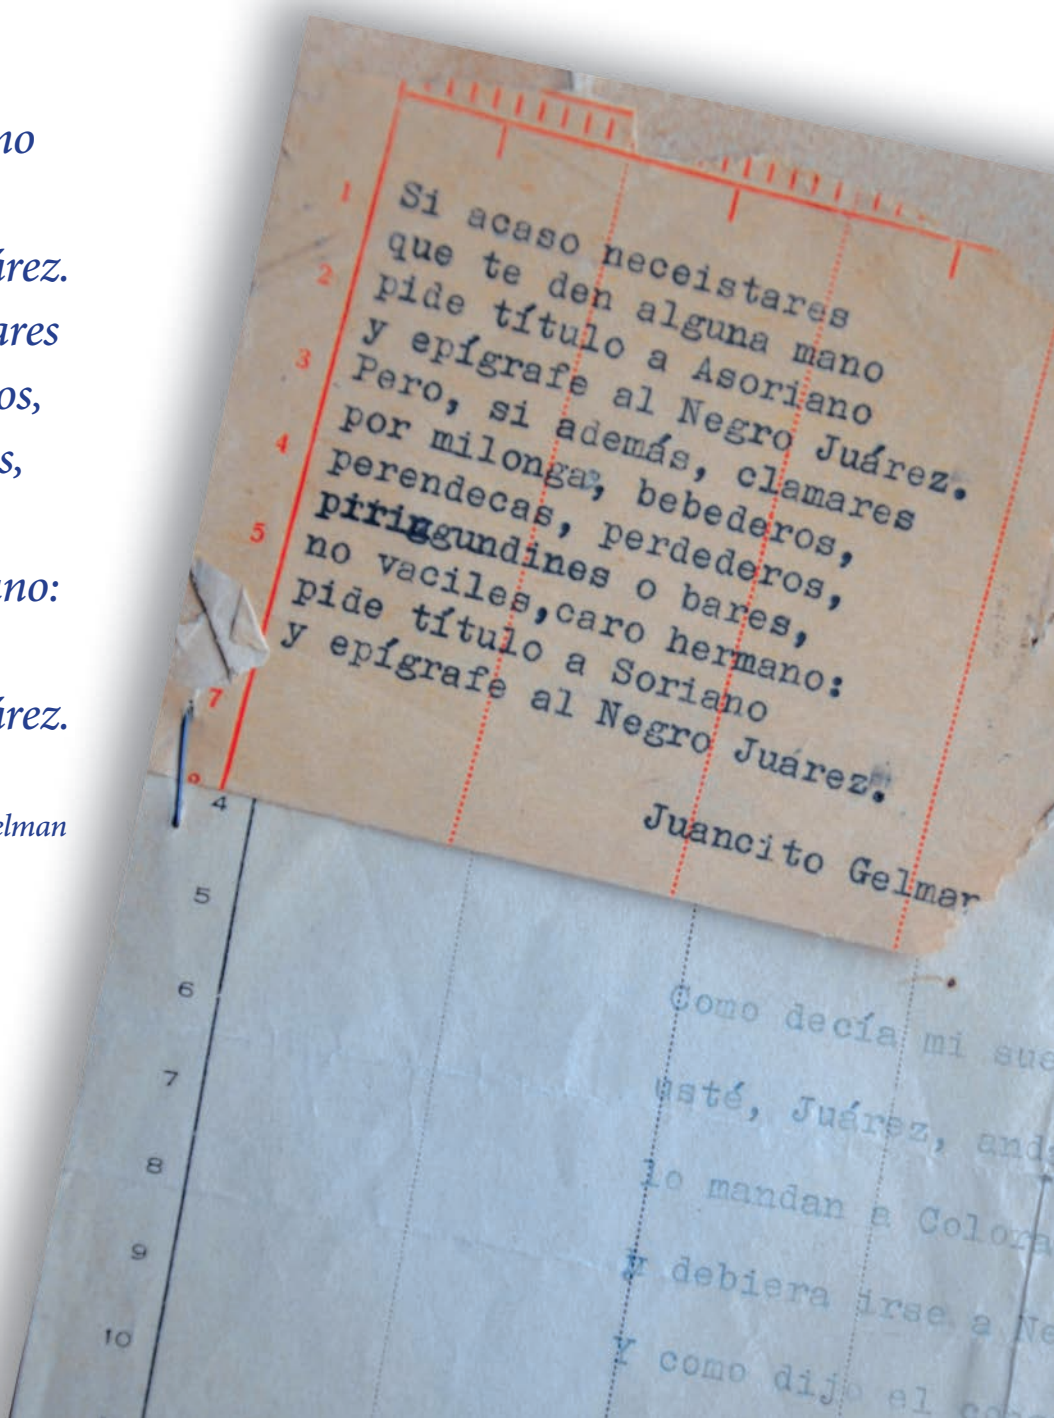 no
árez.
ares
os,
s,
ano:
árez.
elman
1
2
3
4
5
7
Si acaso neceistares
que te den alguna mano
pide título a Asoriano
y epígrafe al Negro Juárez.
Pero, si además, clamares
por milonga, bebederos,
perendecas, perdederos,
piringundines o bares,
no vaciles,caro hermano:
pide título a Soriano
y epígrafe al Negro Juárez.
Juancito Gelman
4
5
6
7
8
9
10
Como decía mi sue
usté, Juárez, and
lo mandan a Colora
y debiera irse a Ne
Y como dijo el